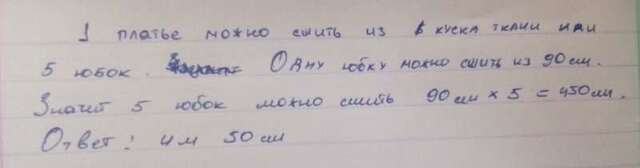 1 платье можно сшить из куска ткани или
5 юбок. Одну юбку можно сшить из 90 см.
Значит 5 юбок можно сшить 90 см х 5 = 450 см.
Ответ: 4 м 50 см